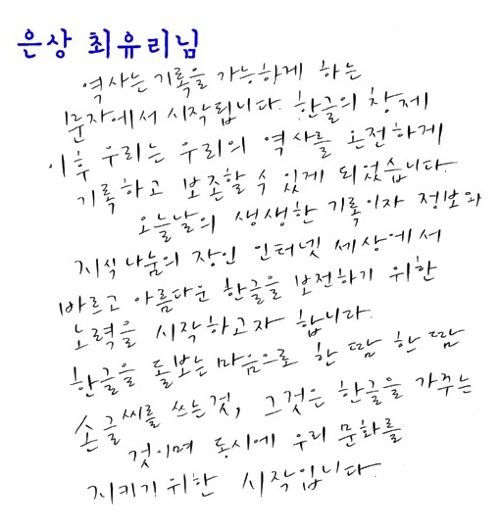 은상 최유리님
역사는 기록을 가능하게 하는
문자에서 시작됩니다. 한글의 창제
이후 우리는 우리의 역사를 온전하게
기록하고 보존할 수 있게 되었습니다.
오늘날의 생생한 기록이자 정보와
지식나눔의 장인 인터넷 세상에서
바르고 아름다운 한글을 보전하기 위한
노력을 시작하고자 합니다.
한글을 돌보는 마음으로 한 땀 한 땀
손글씨를 쓰는것, 그것은 한글을 가꾸는
것이며 동시에 우리 문화를
지키기 위한 시작입니다.